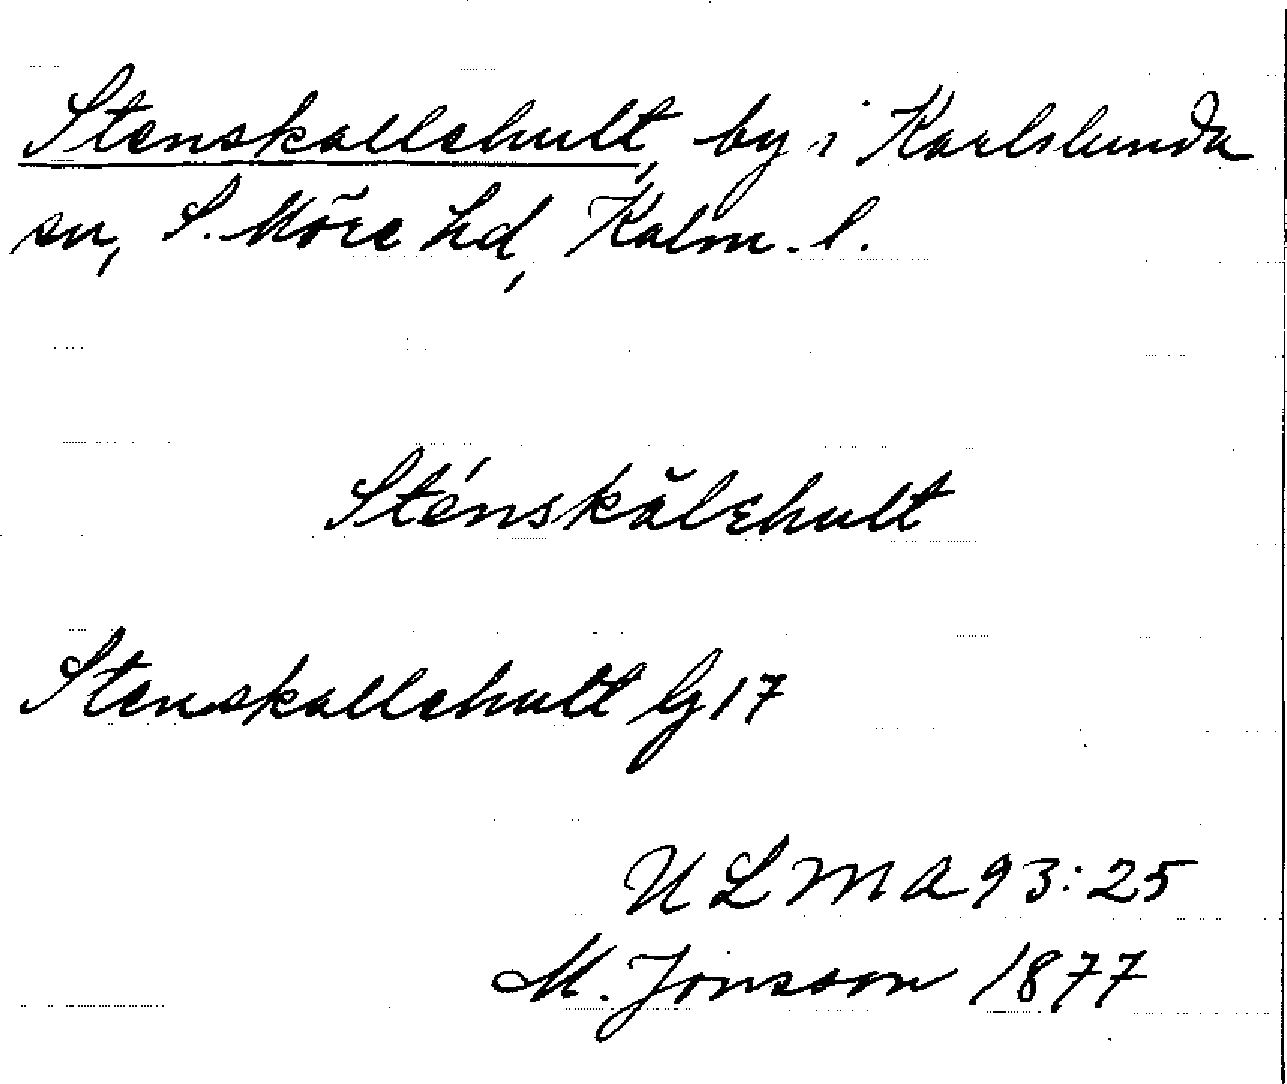 Stenskallehult, by i Karlslunda
sn, S. Möre hd, Kalm. l.
Sténskălehult
Stenskallehult Gj 17
ULMA 93:25
M. Jonsson 1877